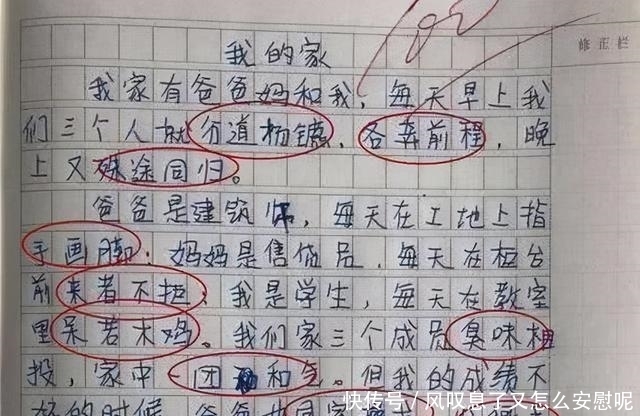 我的家
修正栏
我家有爸爸妈和我,每天早上我
们三个人就分道杨镳、各奔前程,晚
上又殊途同归。
爸爸是建筑师,每天在工地上指
手画脚,妈妈是售货员,每天在柜台
前来者不拒,我是学生,每天在教室
里呆若木鸡。我们家三个成员臭味相
投,家中一团和气。但我的成绩不
好的时候,爸爸也同室
快传号/风叹息了又怎么安慰呢